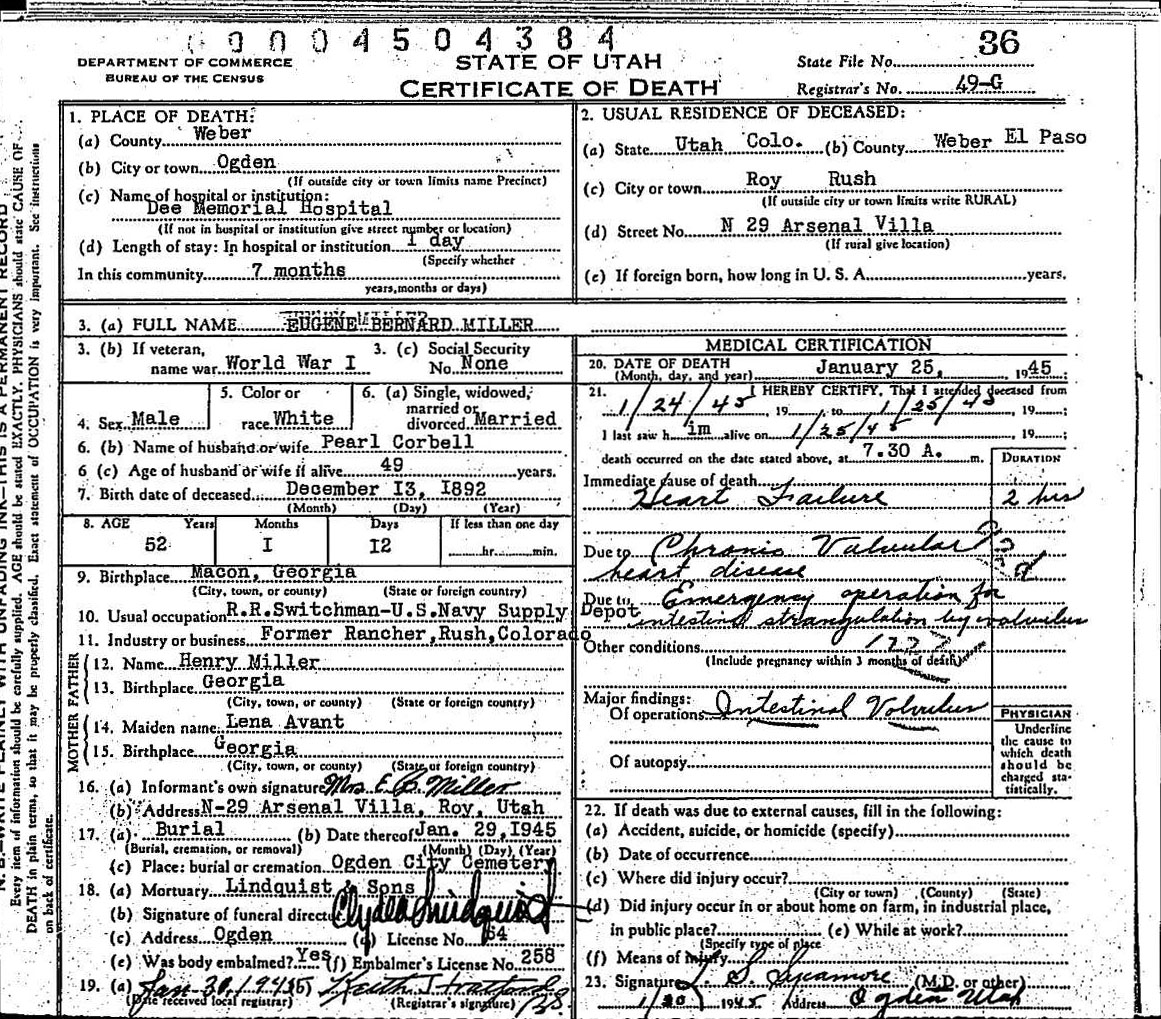 0004504384
36
DEPARTMENT OF COMMERCE
BUREAU OF THE CENSUS
STATE OF UTAH
CERTIFICATE OF DEATH
State File No.
Registrar's No. 49-G
N. B.—WRITE PLAINLY WITH UNFADING INK—THIS IS A PERMANENT RECORD
Every item of information should be carefully supplied. AGE should be stated EXACTLY. PHYSICIANS should state CAUSE OF
DEATH in plain terms, so that it may be properly classified. Exact statement of OCCUPATION is very important. See instructions
on back of certificate.
1. PLACE OF DEATH:
(a) County Weber
(b) City or town Ogden
(If outside city or town limits name Precinct)
(c) Name of hospital or institution:
Dee Memorial Hospital
(If not in hospital or institution give street number or location)
(d) Length of stay: In hospital or institution 1 day
(Specify whether
In this community 7 months
years, months or days)
2. USUAL RESIDENCE OF DECEASED:
(a) State Utah Colo. (b) County Weber El Paso
(c) City or town Roy Rush
(If outside city or town limits write RURAL)
(d) Street No. N 29 Arsenal Villa
(If rural give location)
(e) If foreign born, how long in U. S. A. years.
3. (a) FULL NAME EUGENE BERNARD MILLER
3. (b) If veteran,
name war World War I
3. (c) Social Security
No. None
4. Sex Male
5. Color or
race White
6. (a) Single, widowed,
married or
divorced Married
6. (b) Name of husband or wife Pearl Corbell
6 (c) Age of husband or wife if alive 49 years.
7. Birth date of deceased December I3, I892
(Month) (Day) (Year)
8. AGE Years Months Days If less than one day
52 I I2 hr. min.
9. Birthplace Macon, Georgia
(City, town, or county) (State or foreign country)
10. Usual occupation R.R.Switchman-U.S.Navy Supply
Depot
11. Industry or business Former Rancher, Rush, Colorado
FATHER
12. Name Henry Miller
13. Birthplace Georgia
(City, town, or county) (State or foreign country)
MOTHER
14. Maiden name Lena Avant
15. Birthplace Georgia
(City, town, or county) (State or foreign country)
16. (a) Informant's own signature Mrs E B Miller
(b) Address N-29 Arsenal Villa, Roy, Utah
17. (a) Burial (b) Date thereof Jan. 29, I945
(Burial, cremation, or removal) (Month) (Day) (Year)
(c) Place: burial or cremation Ogden City Cemetery
18. (a) Mortuary Lindquist & Sons
(b) Signature of funeral director Clyde Lindquist
(c) Address Ogden (d) License No. 64
(e) Was body embalmed? Yes (f) Embalmer's License No. 258
19. (a) Jan 30, 1945 (b)
(Date received local registrar) (Registrar's signature)
MEDICAL CERTIFICATION
20. DATE OF DEATH
(Month, day, and year) January 25, 1945;
21. I HEREBY CERTIFY, That I attended deceased from
1/24/45, 19 , to 1/25/45, 19 ;
I last saw h im alive on 1/25/45, 19 ;
death occurred on the date stated above, at 7.30 A. m.
DURATION
Immediate cause of death
Heart Failure 2 hrs
Due to Chronic Valvular
heart disease
Due to Emergency operation for
intestinal strangulation by volvulus
Other conditions
(Include pregnancy within 3 months of death)
Major findings:
Of operations Intestinal Volvulus
Of autopsy
PHYSICIAN
Underline
the cause to
which death
should be
charged sta-
tistically.
22. If death was due to external causes, fill in the following:
(a) Accident, suicide, or homicide (specify)
(b) Date of occurrence
(c) Where did injury occur?
(City or town) (County) (State)
(d) Did injury occur in or about home on farm, in industrial place,
in public place? (e) While at work?
(Specify type of place
(f) Means of Injury
23. Signature L. S. Sycamore (M.D. or other)
1/30 1945 Address Ogden Utah